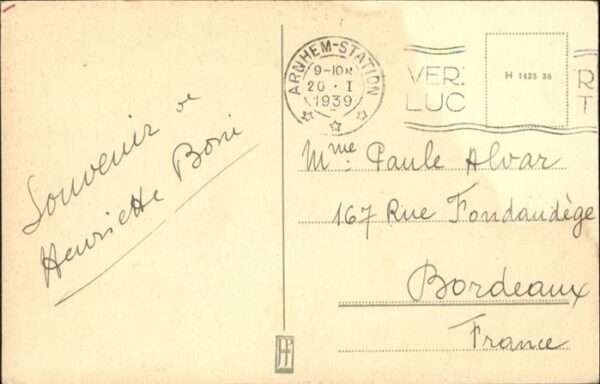 Souvenir de
Henriette Boni
ARNHEM-STATION
9-10N
20 · I
1939
VER:
LUC
R
T
H 1425 36
Mme. Paule Alvar
167 Rue Fondaudège
Bordeaux
France